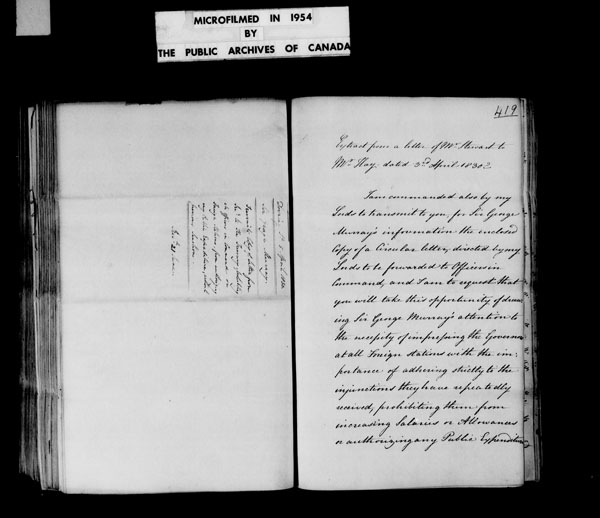 MICROFILMED IN 1954
BY
THE PUBLIC ARCHIVES OF CANADA
419
Extract from a letter of Mr. Steward to
Mr. Hay dated 3rd April 1830
I am commanded also by my
Lords to transmit to you, for Sir George
Murray's information the enclosed
Copy of a Circular letter, directed by my
Lords to be forwarded to Officers in
Command, and I am to request that
you will take this opportunity of draw
ing Sir George Murray's attention to
the necessity of impressing the Governors
at all Foreign stations with the im:
portance of adhering strictly to the
injunctions they have repeatedly
received, prohibiting them from
increasing Salaries or Allowances
or authorizing any Public Expenditure
Sir George Murray